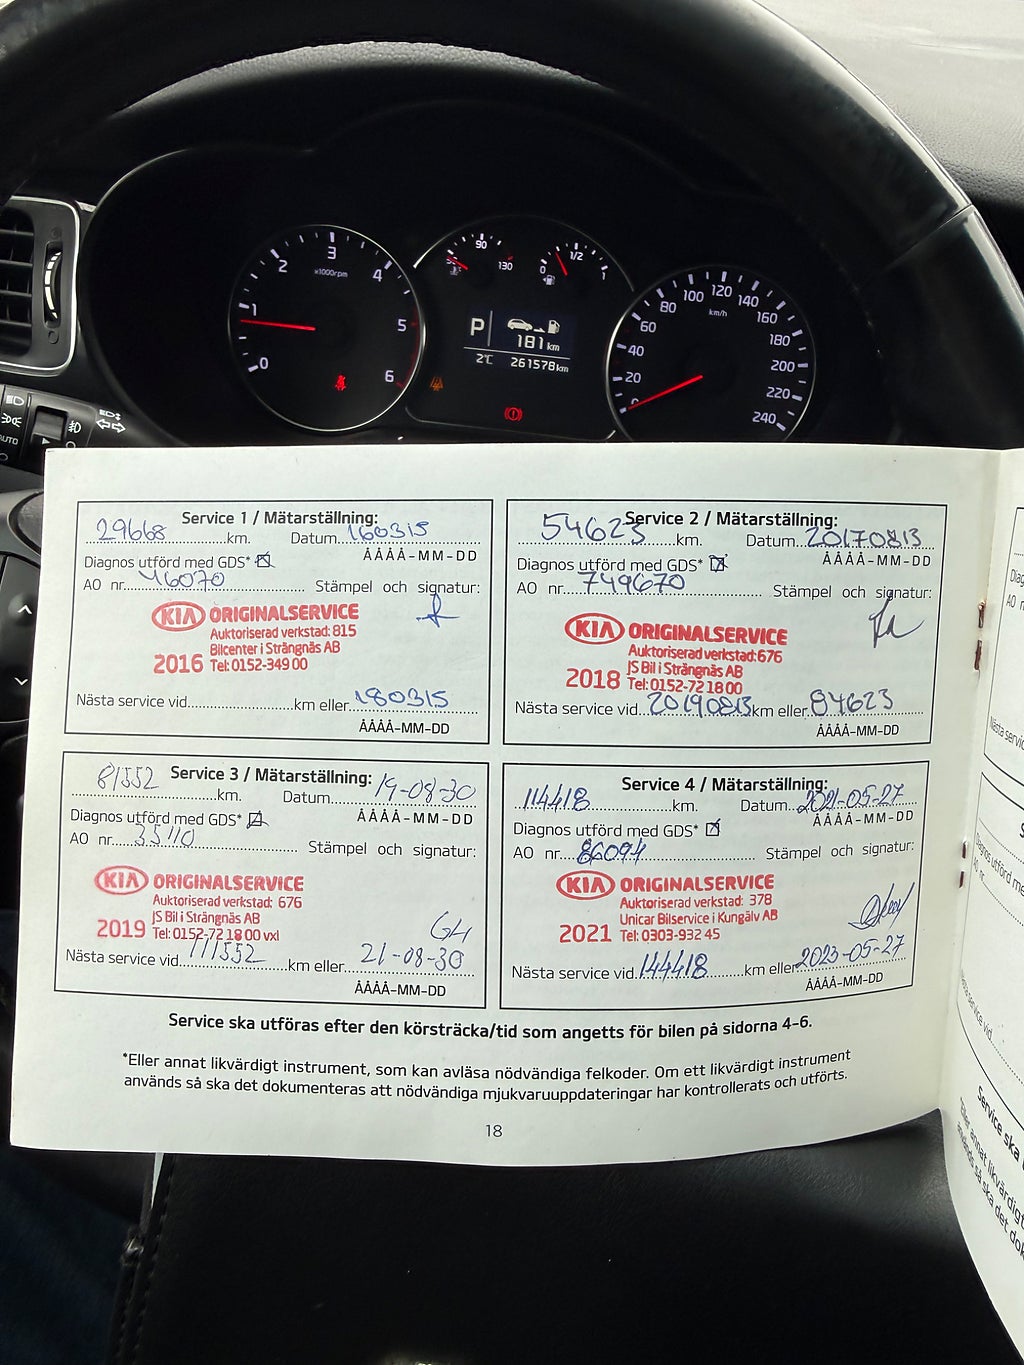 90
130
1/2
0
1
x1000rpm
0
1
2
3
4
5
6
P
181 km
2°C 261578 km
km/h
0
20
40
60
80
100
120
140
160
180
200
220
240
AUTO
Service 1 / Mätarställning:
29668 km. Datum 160315
ÅÅÅÅ-MM-DD
Diagnos utförd med GDS*
AO nr. 46070 Stämpel och signatur:
KIA ORIGINALSERVICE
Auktoriserad verkstad: 815
Bilcenter i Strängnäs AB
2016 Tel: 0152-349 00
Nästa service vid km eller 180315
ÅÅÅÅ-MM-DD
Service 2 / Mätarställning:
54623 km. Datum 20170813
ÅÅÅÅ-MM-DD
Diagnos utförd med GDS*
AO nr. 749670 Stämpel och signatur:
KIA ORIGINALSERVICE
Auktoriserad verkstad: 676
JS Bil i Strängnäs AB
2018 Tel: 0152-72 18 00
Nästa service vid 20190813 km eller 84623
ÅÅÅÅ-MM-DD
Service 3 / Mätarställning:
81552 km. Datum 19-08-30
ÅÅÅÅ-MM-DD
Diagnos utförd med GDS*
AO nr. 35110 Stämpel och signatur:
KIA ORIGINALSERVICE
Auktoriserad verkstad: 676
JS Bil i Strängnäs AB
2019 Tel: 0152-72 18 00 vxl
Nästa service vid 111552 km eller 21-08-30
ÅÅÅÅ-MM-DD
Service 4 / Mätarställning:
114418 km. Datum 2021-05-27
ÅÅÅÅ-MM-DD
Diagnos utförd med GDS*
AO nr. 86094 Stämpel och signatur:
KIA ORIGINALSERVICE
Auktoriserad verkstad: 378
Unicar Bilservice i Kungälv AB
2021 Tel: 0303-932 45
Nästa service vid 144418 km eller 2023-05-27
ÅÅÅÅ-MM-DD
Service ska utföras efter den körsträcka/tid som angetts för bilen på sidorna 4-6.
*Eller annat likvärdigt instrument, som kan avläsa nödvändiga felkoder. Om ett likvärdigt instrument
används så ska det dokumenteras att nödvändiga mjukvaruuppdateringar har kontrollerats och utförts.
18